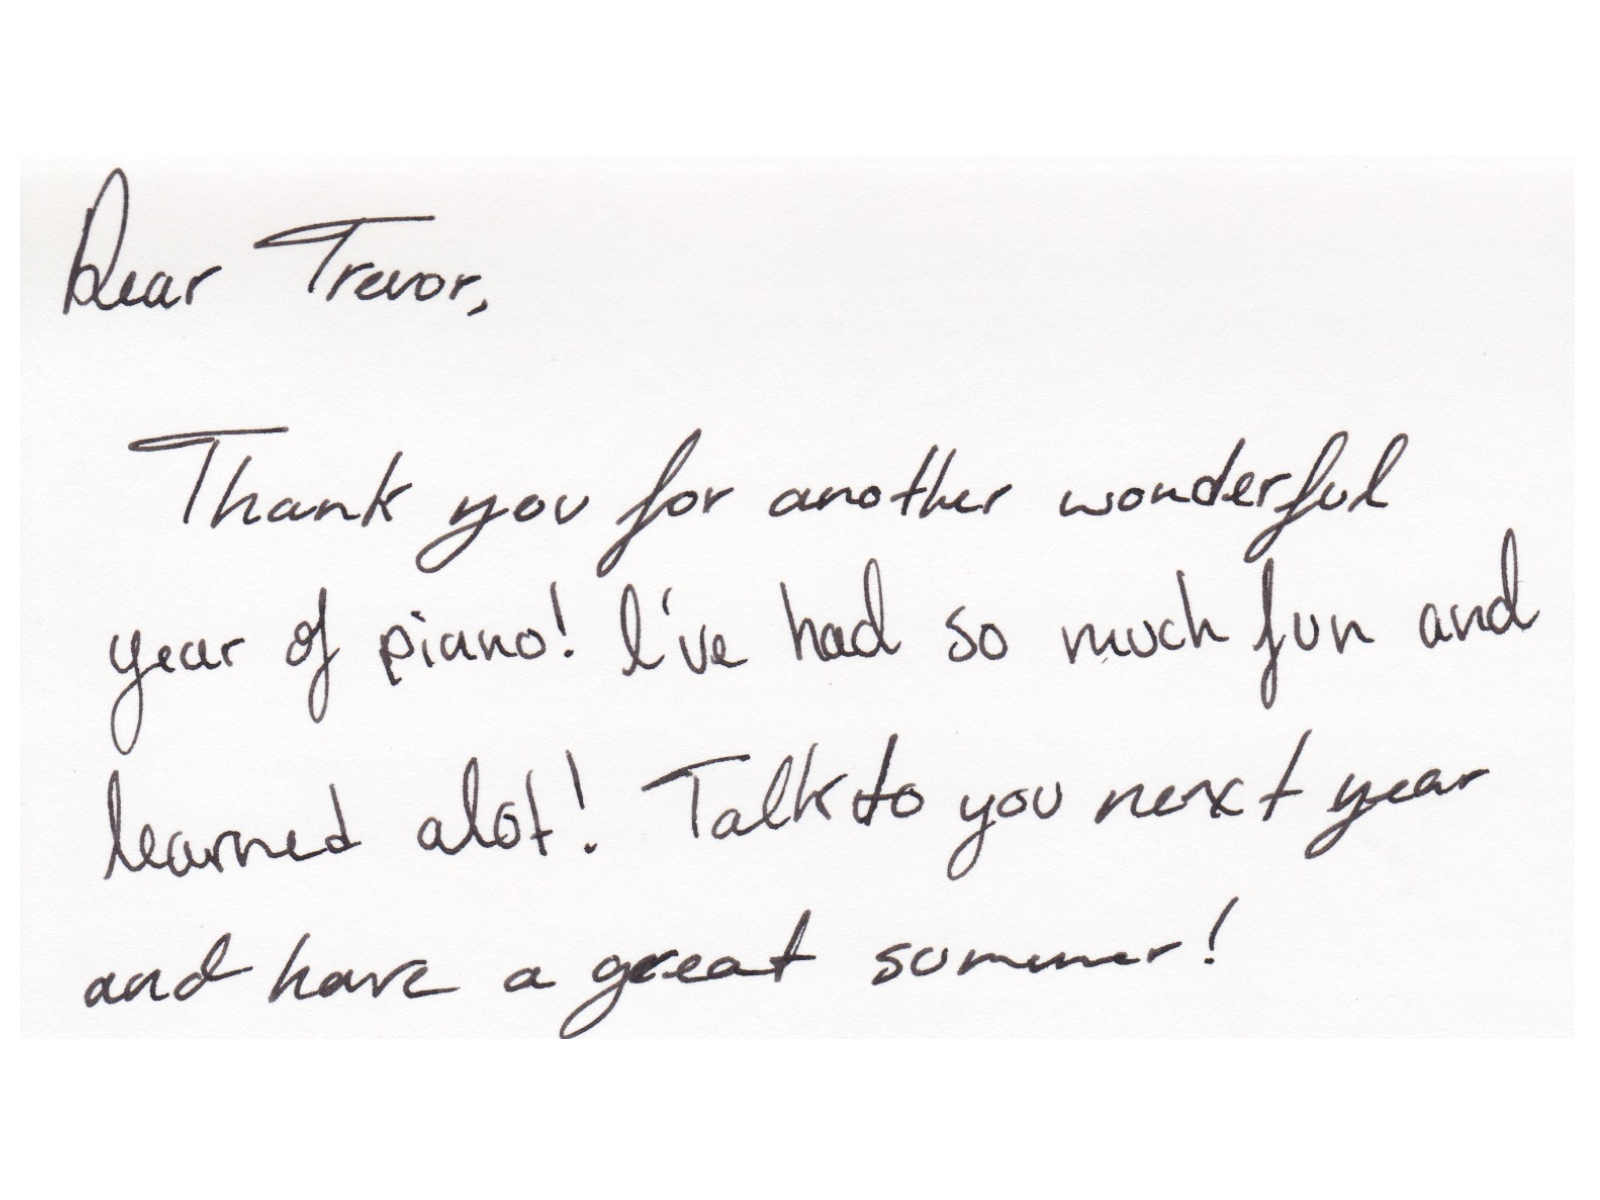 Dear Trevor,
Thank you for another wonderful
year of piano! I've had so much fun and
learned alot! Talk to you next year
and have a great summer!